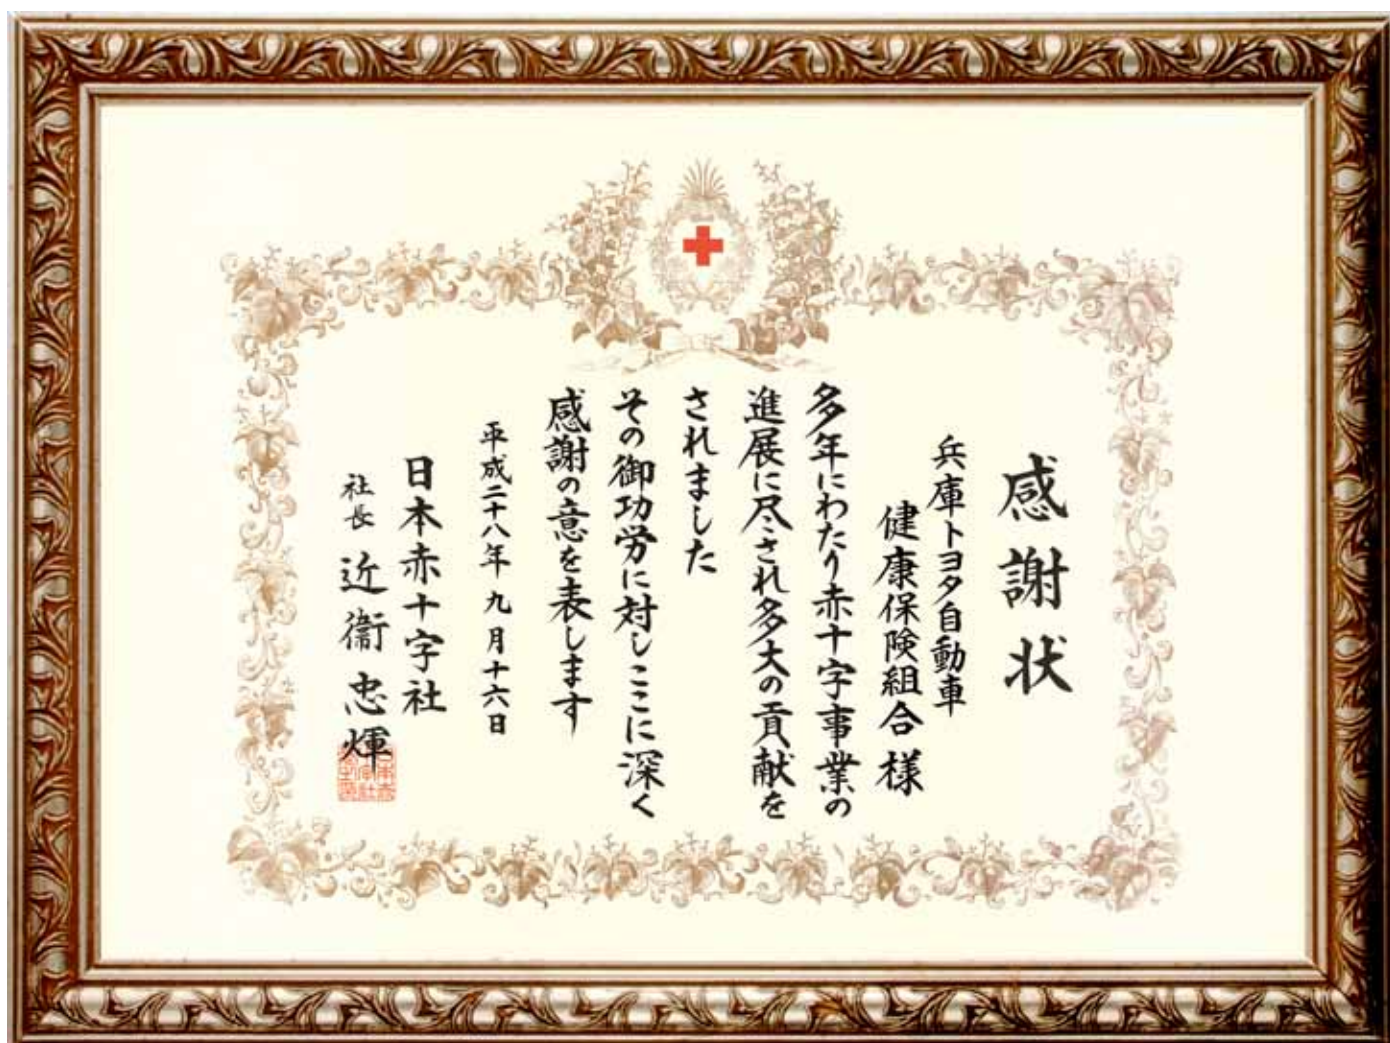 感謝状
兵庫トヨタ自動車
健康保険組合様
多年にわたり赤十字事業の
進展に尽さされ多大の貢献を
されました
その御功労に対しここに深く
感謝の意を表します
平成二十八年九月十六日
日本赤十字社
社長 近衞忠煇